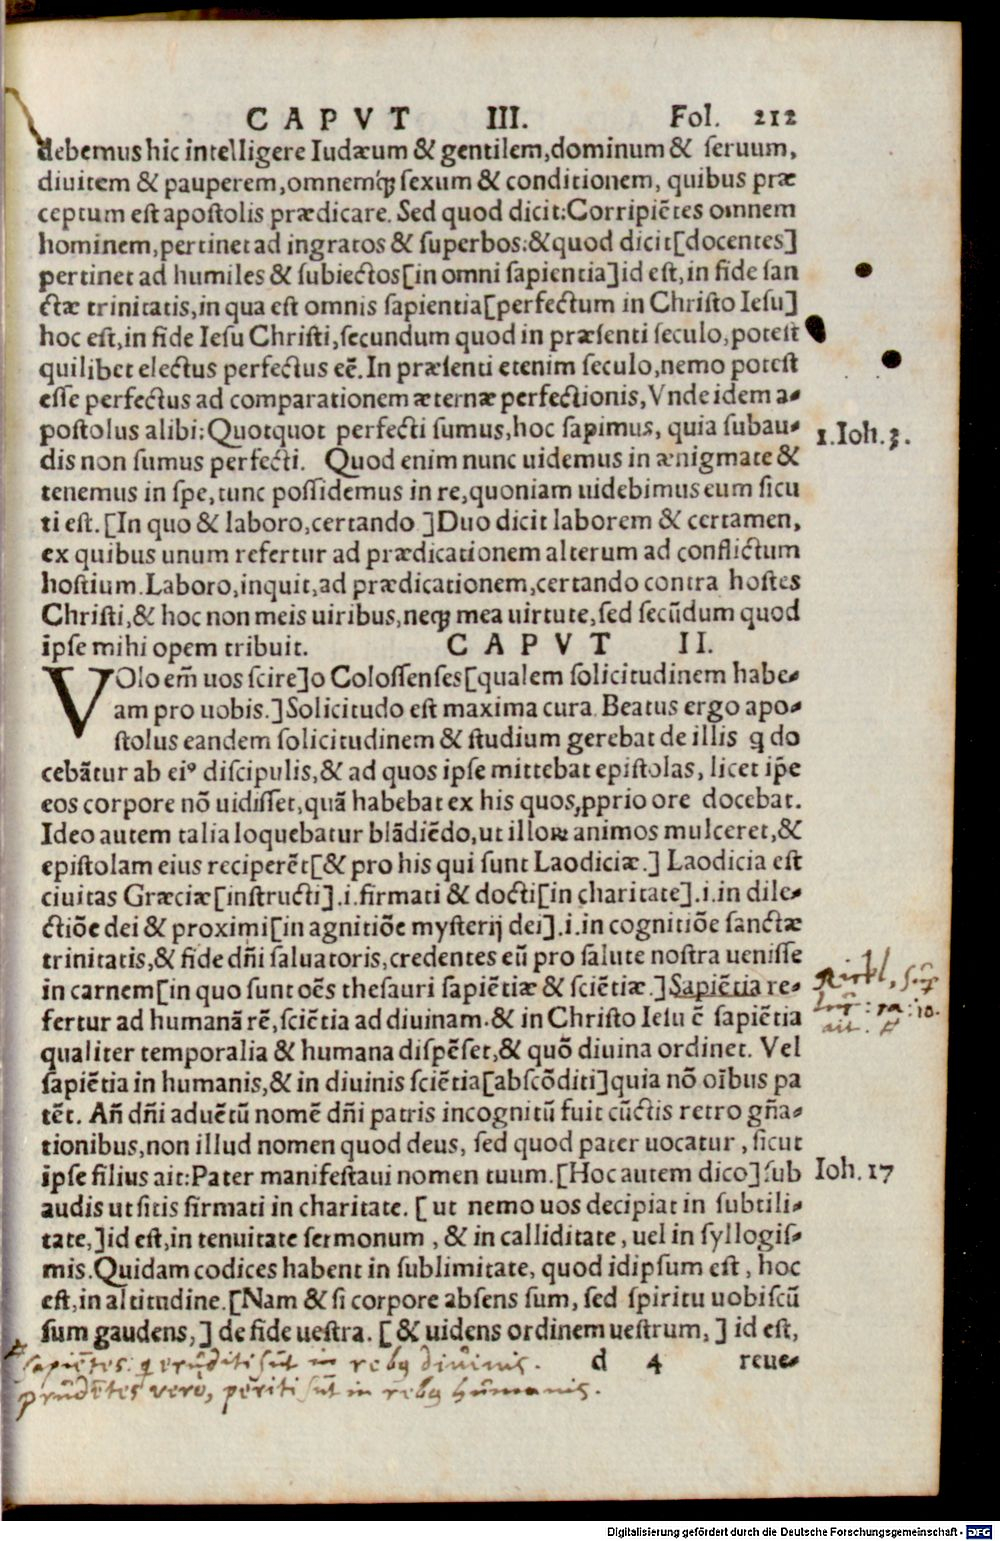 CAPVT III. Fol. 212
debemus hic intelligere Iudæum & gentilem, dominum & seruum,
diuitem & pauperem, omnemq́ꝫ sexum & conditionem, quibus præ
ceptum est apostolis prædicare. Sed quod dicit: Corripiẽtes omnem
hominem, pertinet ad ingratos & superbos: & quod dicit [docentes]
pertinet ad humiles & subiectos [in omni sapientia] id est, in fide san
ctæ trinitatis, in qua est omnis sapientia [perfectum in Christo Iesu]
hoc est, in fide Iesu Christi, secundum quod in præsenti seculo, potest
quilibet electus perfectus eẽ. In præsenti etenim seculo, nemo potest
esse perfectus ad comparationem æternæ perfectionis, Vnde idem a-
postolus alibi: Quotquot perfecti sumus, hoc sapimus, quia subau-
1. Ioh. 3.
dis non sumus perfecti. Quod enim nunc uidemus in ænigmate &
tenemus in spe, tunc possidemus in re, quoniam uidebimus eum sicu
ti est. [In quo & laboro, certando] Duo dicit laborem & certamen,
ex quibus unum refertur ad prædicationem alterum ad conflictum
hostium. Laboro, inquit, ad prædicationem, certando contra hostes
Christi, & hoc non meis uiribus, neqꝫ mea uirtute, sed secũdum quod
ipse mihi opem tribuit. CAPVT II.
VOlo em̃ uos scire] o Colossenses [qualem solicitudinem habe-
am pro uobis.] Solicitudo est maxima cura. Beatus ergo apo-
stolus eandem solicitudinem & studium gerebat de illis q do
cebãtur ab eiꝰ discipulis, & ad quos ipse mittebat epistolas, licet ip̃e
eos corpore nõ uidisset, quã habebat ex his quos ꝓprio ore docebat.
Ideo autem talia loquebatur blãdiẽdo, ut illoꝝ animos mulceret, &
epistolam eius reciperẽt [& pro his qui sunt Laodiciæ.] Laodicia est
ciuitas Græciæ [instructi] .i. firmati & docti [in charitate] .i. in dile-
ctiõe dei & proximi [in agnitiõe mysterij dei] .i. in cognitiõe sanctæ
trinitatis, & fide dñi saluatoris, credentes eũ pro salute nostra uenisse
in carnem [in quo sunt oẽs thesauri sapiẽtiæ & sciẽtiæ.] Sapiẽtia re-
fertur ad humanã rẽ, sciẽtia ad diuinam. & in Christo Iesu ẽ sapiẽtia
qualiter temporalia & humana dispẽset, & quõ diuina ordinet. Vel
sapiẽtia in humanis, & in diuinis sciẽtia [abscõditi] quia nõ oĩbus pa
tẽt. Añ dñi aduẽtũ nomẽ dñi patris incognitũ fuit cũctis retro gña-
tionibus, non illud nomen quod deus, sed quod pater uocatur, sicut
ipse filius ait: Pater manifestaui nomen tuum. [Hoc autem dico] sub
Ioh. 17
audis ut sitis firmati in charitate. [ut nemo uos decipiat in subtili-
tate,] id est, in tenuitate sermonum, & in calliditate, uel in syllogis-
mis. Quidam codices habent in sublimitate, quod idipsum est, hoc
est, in altitudine. [Nam & si corpore absens sum, sed spiritu uobiscũ
sum gaudens,] de fide uestra. [& uidens ordinem uestrum,] id est,
d 4 reue-
sapiẽtes: q erũditi sũt in rebꝫ diuinis.
prudẽtes vero, periti sũt in rebꝫ humanis.
Digitalisierung gefördert durch die Deutsche Forschungsgemeinschaft - DFG